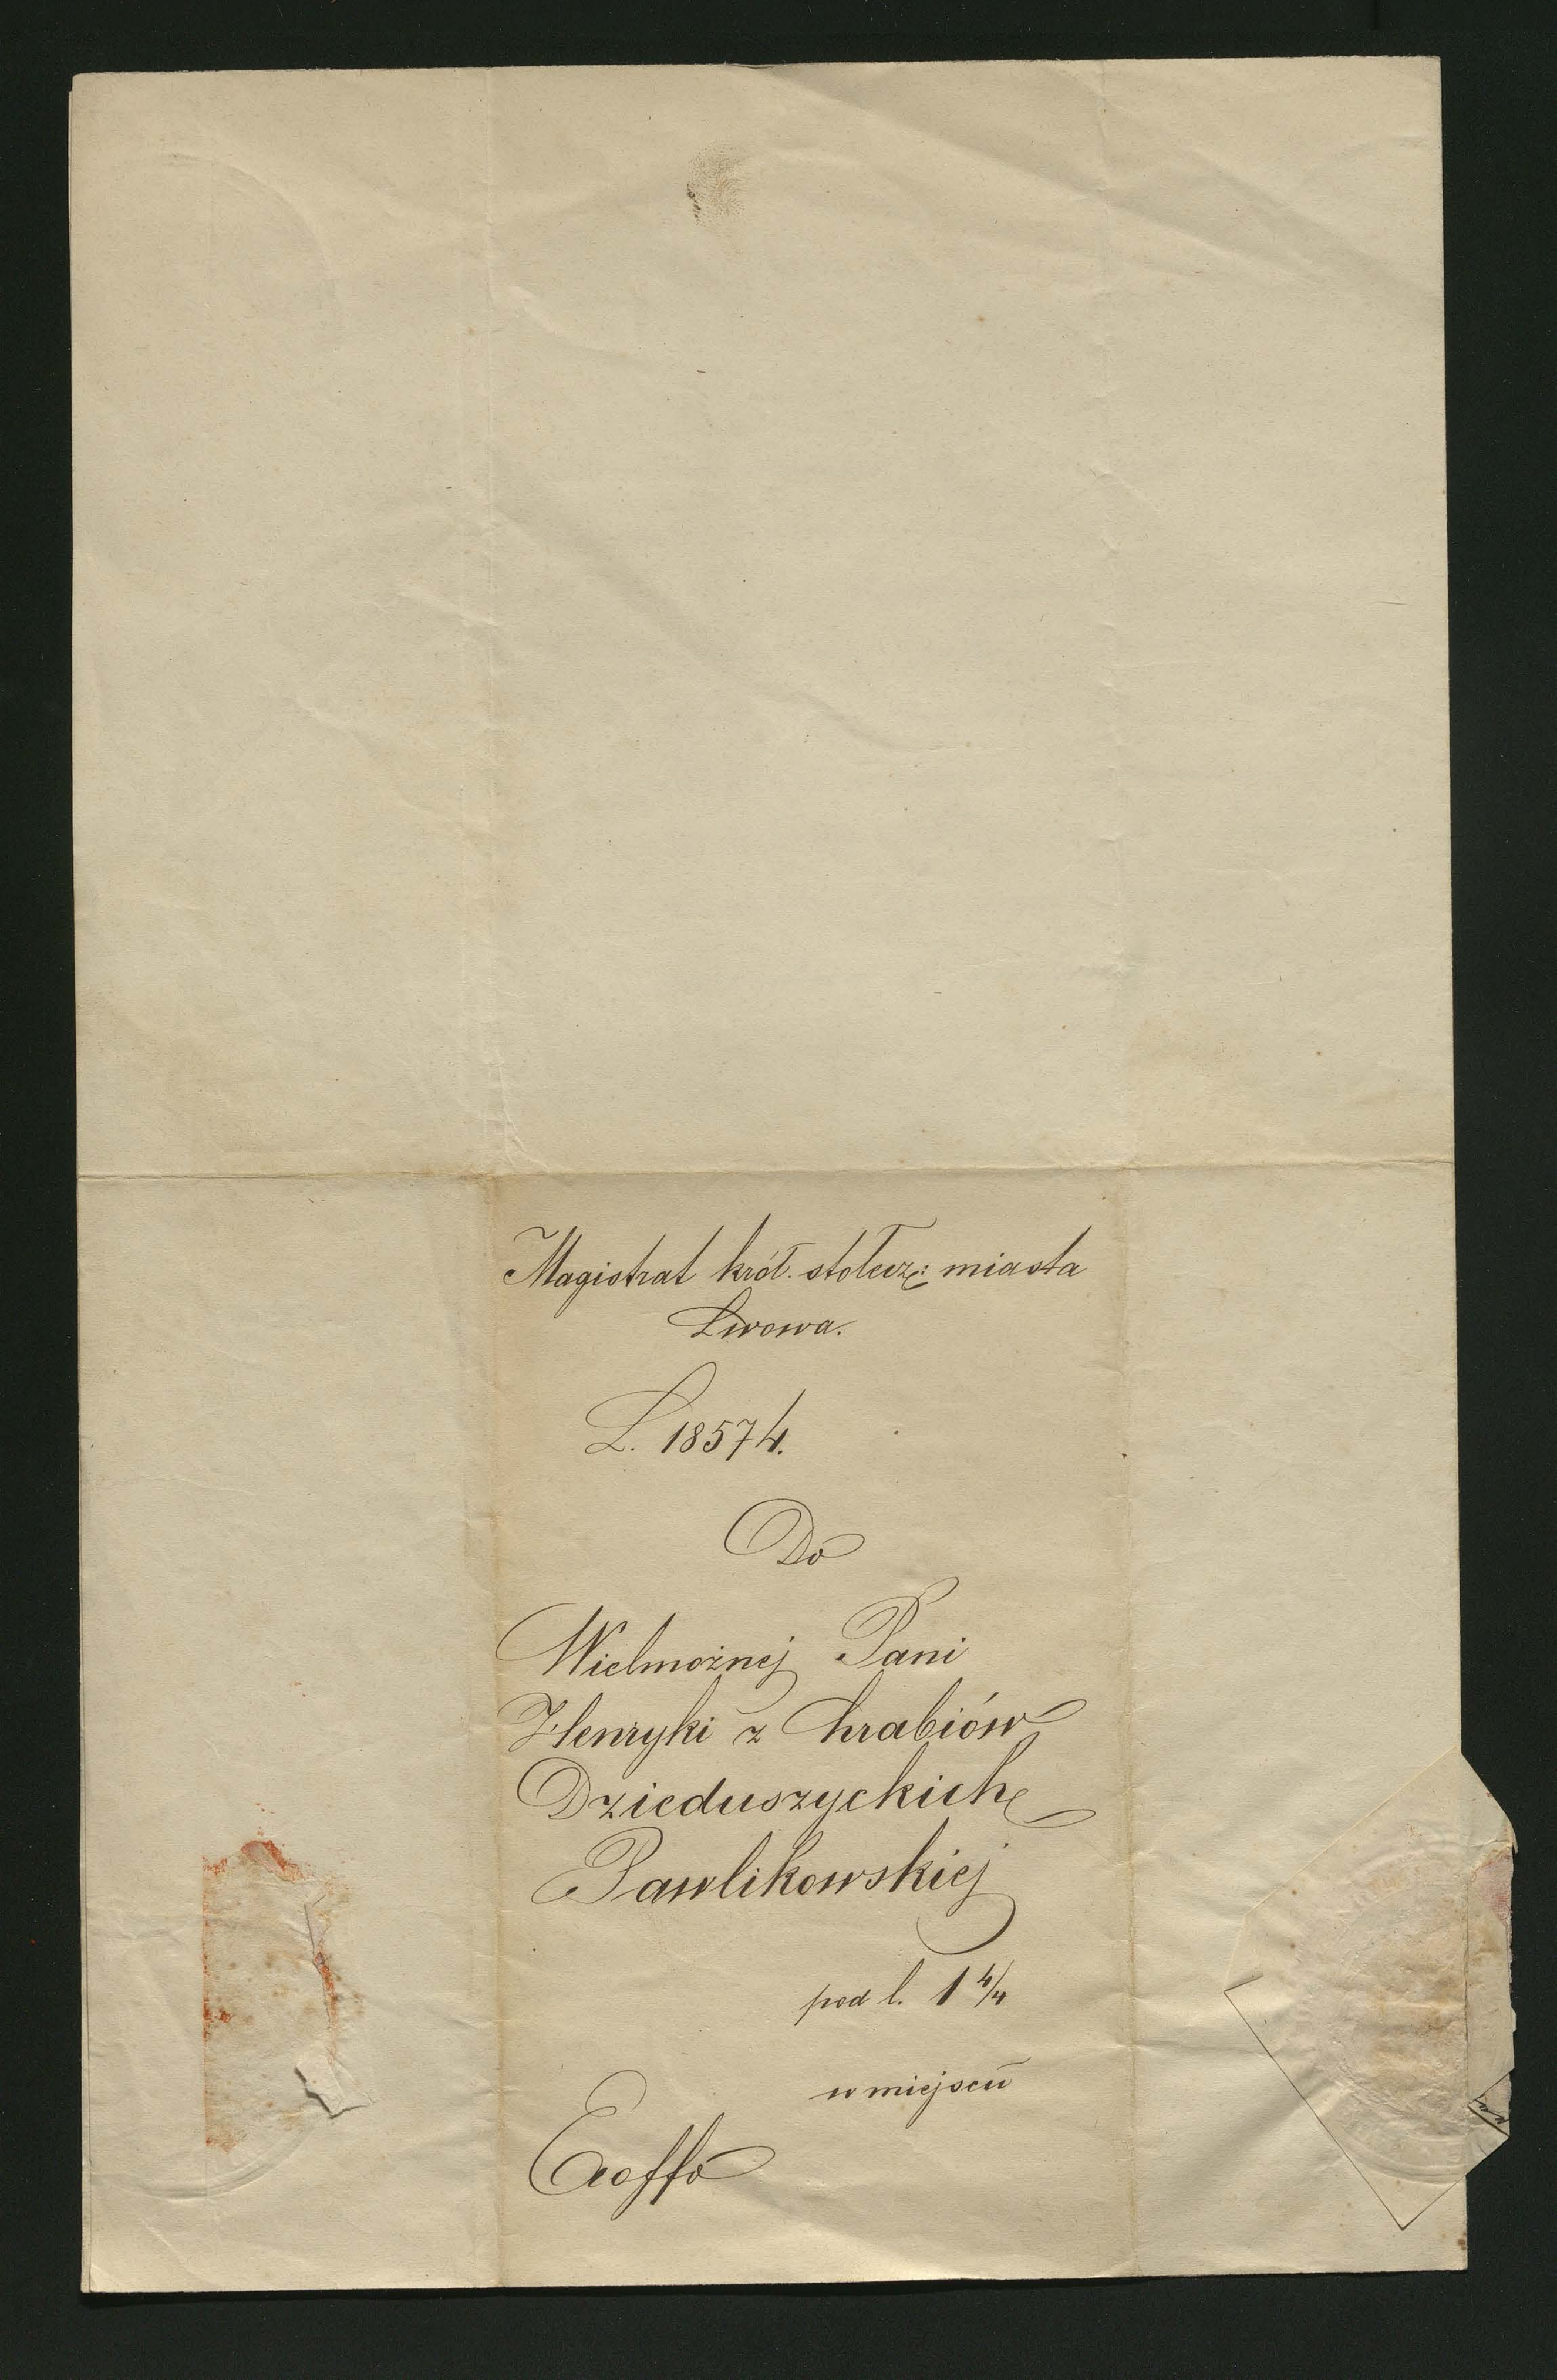 Magistrat król. stołecz: miasta
Lwowa.
L. 18574.
Do
Wielmożnej Pani
Henryki z hrabiów
Dzieduszyckich
Pawlikowskiej
pod l. 1 4/4
w miejscu
Exoffo